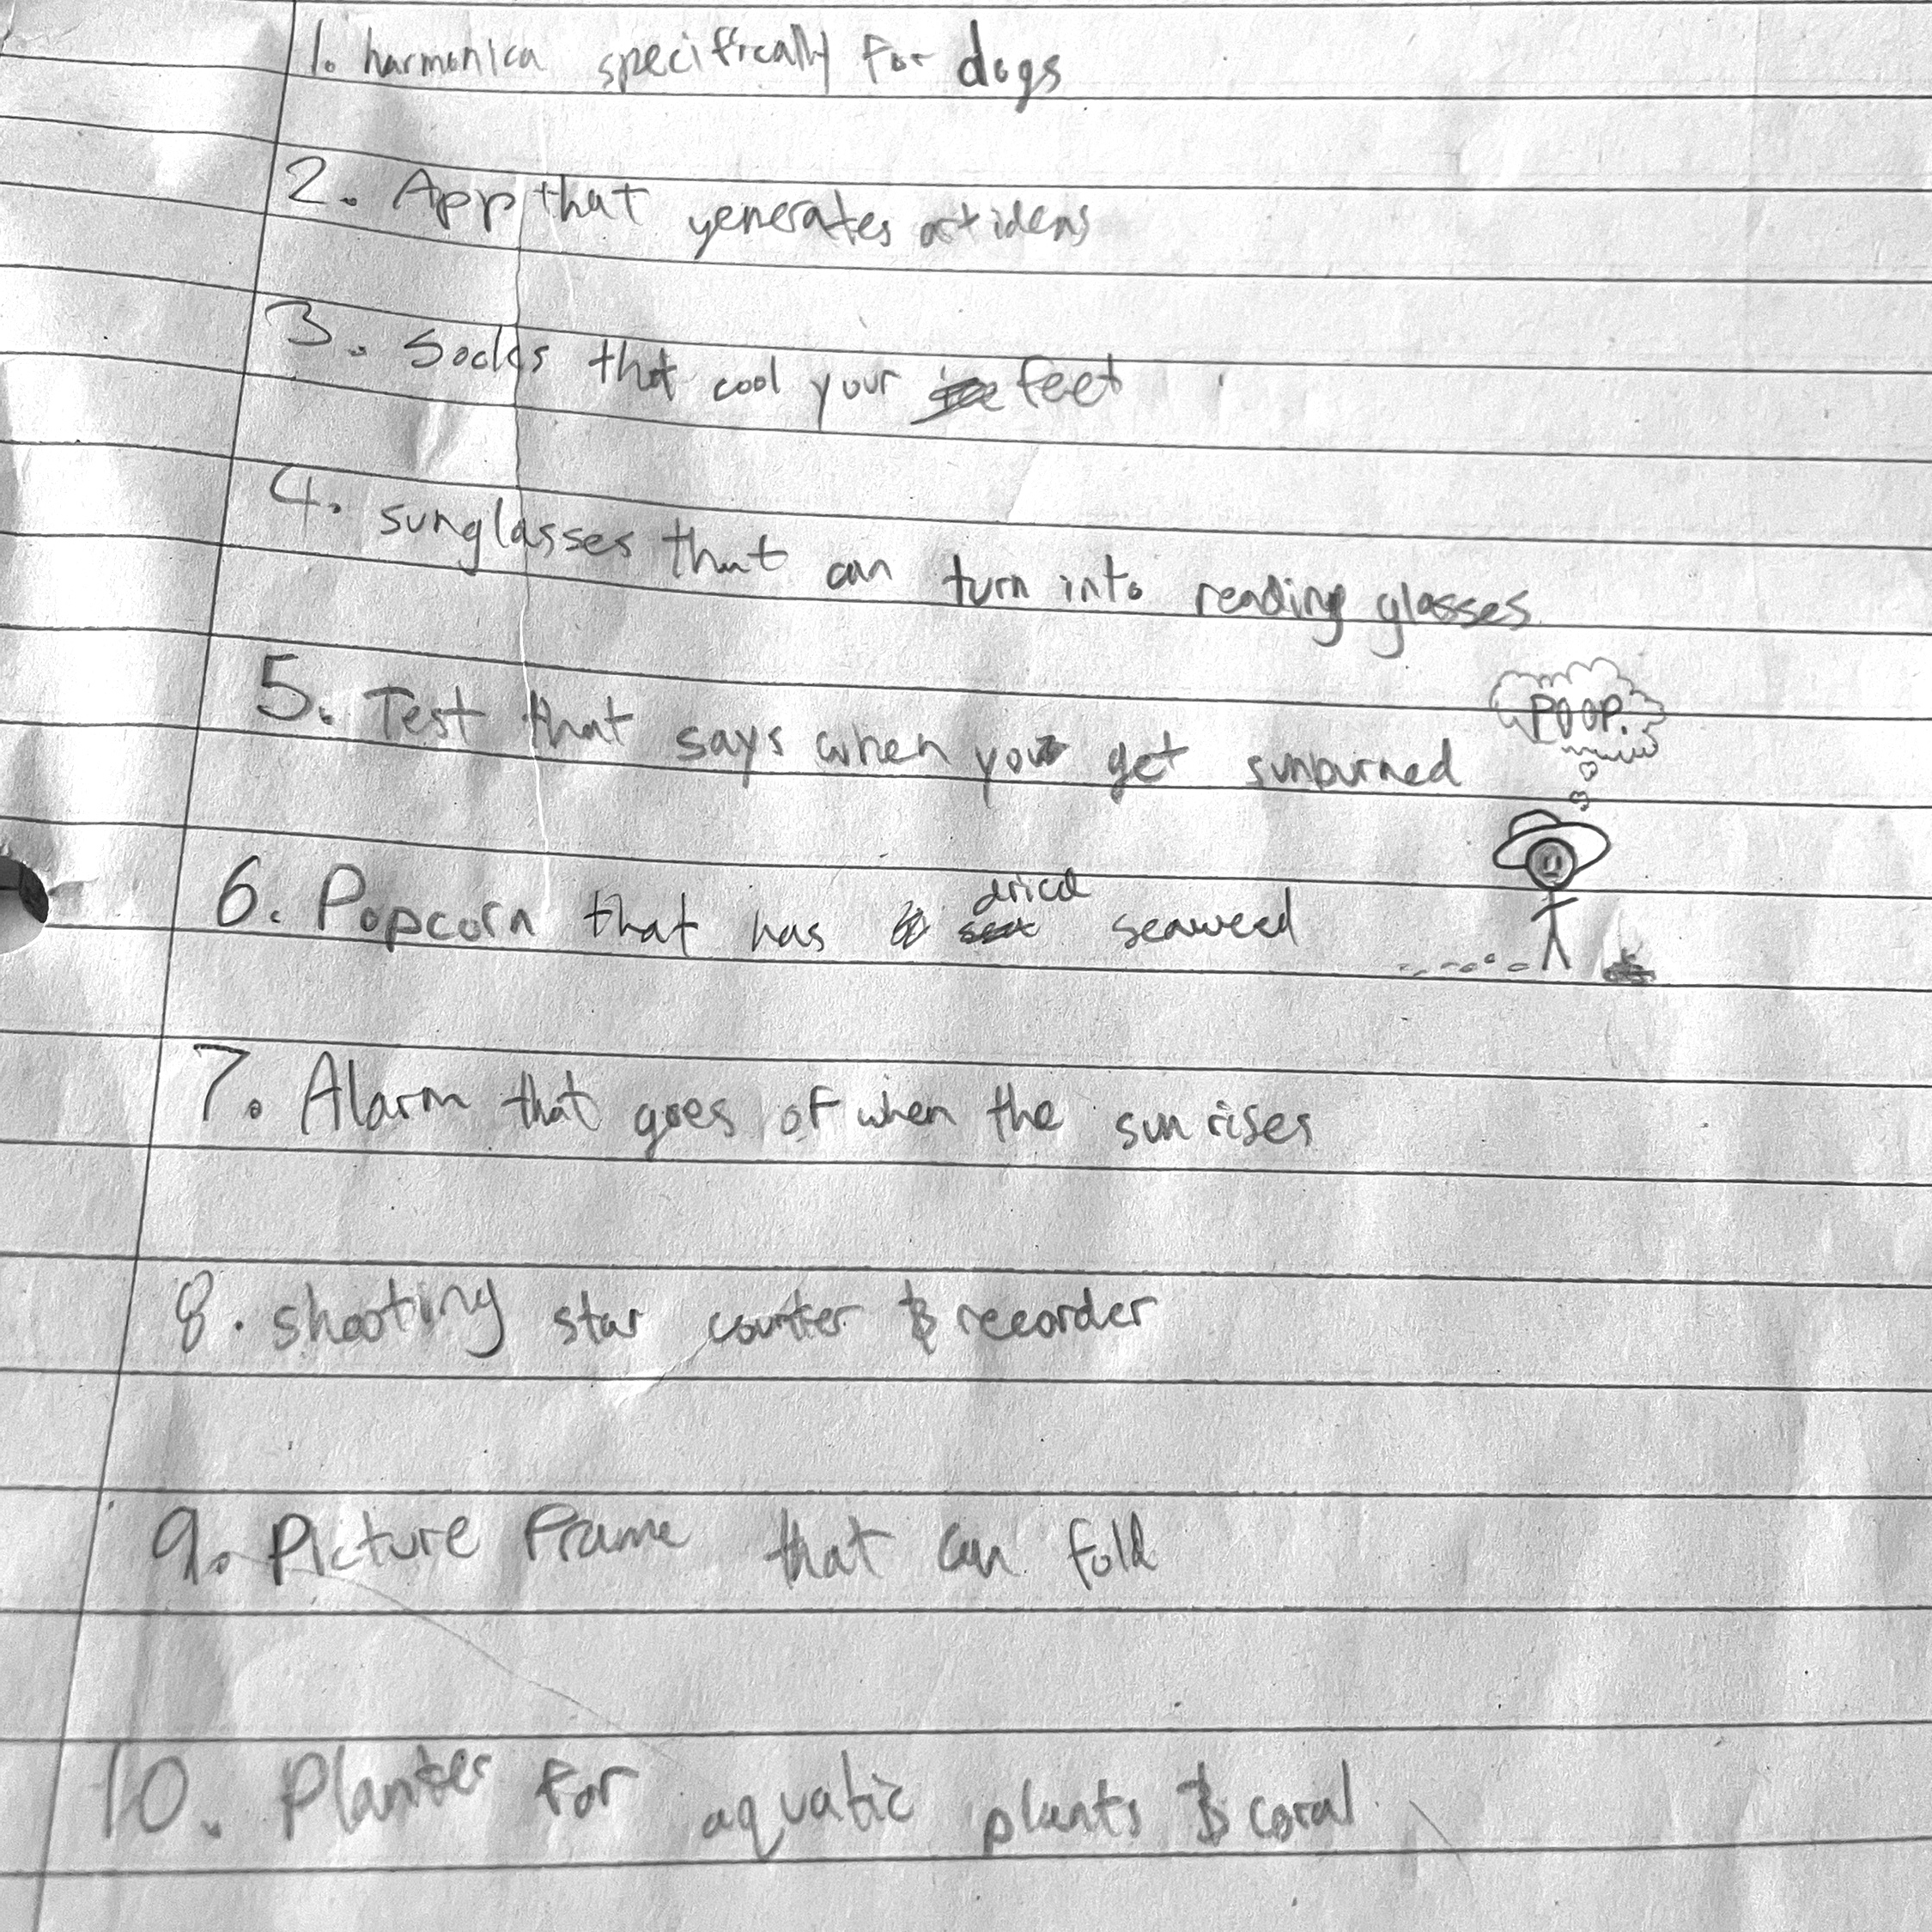 1. harmonica specifically for dogs
2. App that generates art ideas
3. Socks that cool your feet
4. sunglasses that can turn into reading glasses
POOP.
5. Test that says when you get sunburned
6. Popcorn that has dried seaweed
7. Alarm that goes of when the sun rises
8. shooting star counter & recorder
9. Picture Frame that can fold
10. Planter for aquatic plants & coral